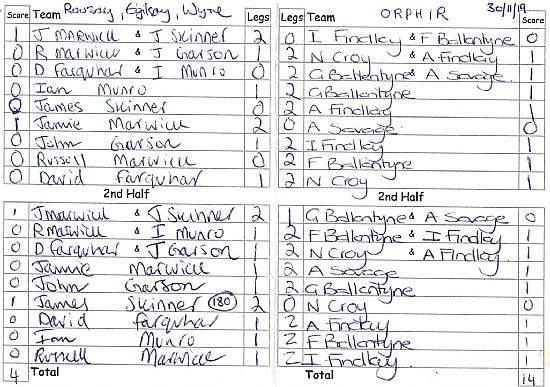 Score Team Rousay, Egilsay, Wyre Legs Legs Team ORPHIR 30/11/19 Score
1 J MARWICK & J SKINNER 2 0 I Findlay & F Ballantyne 0
0 R Marwick & J Garson 1 2 N Croy & A Findlay 1
0 D Farquhar & I Munro 0 2 G Ballantyne & A Savage 1
0 Ian Munro 1 2 G Ballantyne 1
0 James Skinner 0 2 A Findlay 1
1 Jamie Marwick 2 0 A Savage 0
0 John Garson 1 2 I Findlay 1
0 Russell Marwick 0 2 F Ballantyne 1
0 David Farquhar 1 2 N Croy 1
2nd Half 2nd Half
1 J Marwick & J Skinner 2 1 G Ballantyne & A Savage 0
0 R Marwick & I Munro 1 2 F Ballantyne & I Findlay 1
0 D Farquhar & J Garson 1 2 N Croy & A Findlay 1
0 Jamie Marwick 1 2 A Savage 1
0 John Garson 1 2 G Ballantyne 1
1 James Skinner 180 2 0 N Croy 0
0 David Farquhar 1 2 A Findlay 1
0 Ian Munro 1 2 F Ballantyne 1
0 Russell Marwick 1 2 I Findlay 1
4 Total Total 14